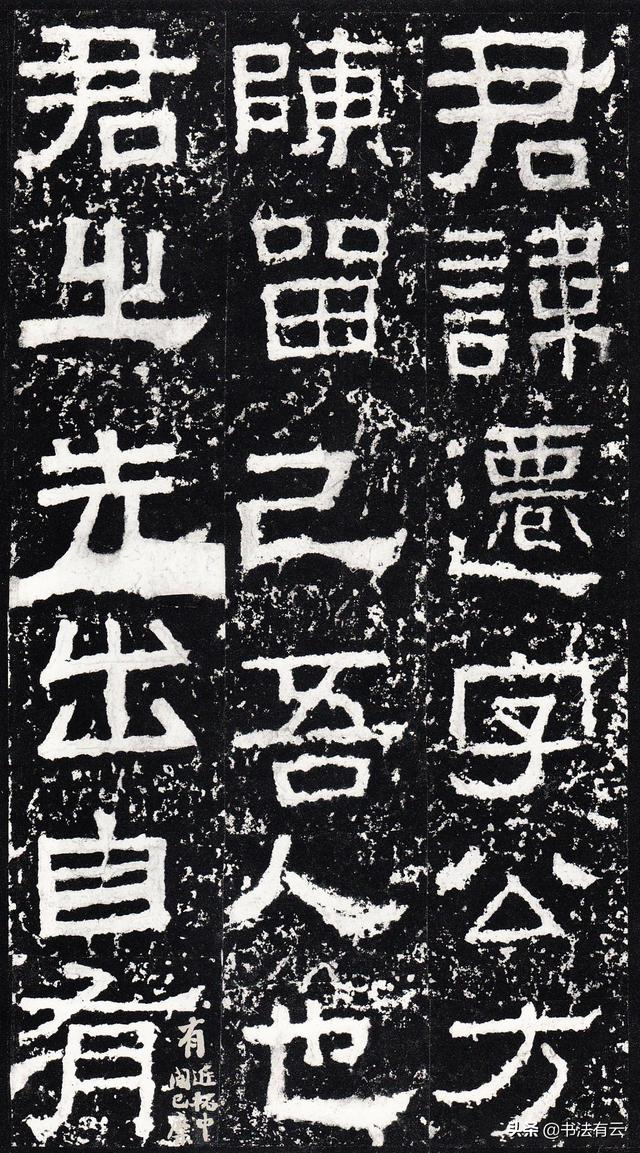 君諱遷字公方
陳留己吾人也
君之先出自有
有
近拓中
头条 @书法有云